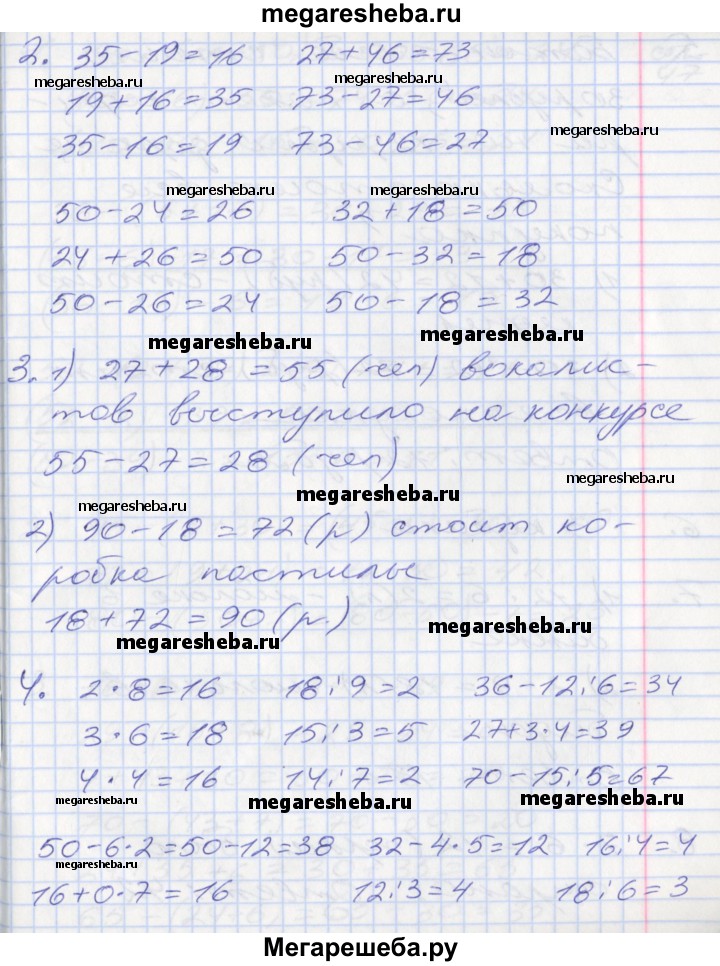 megaresheba.ru
2. 35-19=16 27+46=73
megaresheba.ru
megaresheba.ru
19+16=35 73-27=46
megaresheba.ru
35-16=19 73-46=27
megaresheba.ru megaresheba.ru
50-24=26 32+18=50
24+26=50 50-32=18
50-26=24 50-18=32
megaresheba.ru megaresheba.ru
3. 1) 27+28=55 (чел) вокалис-
тов выступило на конкурсе
55-27=28 (чел)
megaresheba.ru
megaresheba.ru
megaresheba.ru
2) 90-18=72(р) стоит ко-
робка пастилы
18+72=90(р.)
megaresheba.ru megaresheba.ru
4. 2·8=16 18:9=2 36-12:6=34
3·6=18 15:3=5 27+3·4=39
4·4=16 14:7=2 70-15:5=67
megaresheba.ru megaresheba.ru megaresheba.ru
50-6·2=50-12=38 32-4·5=12 16:4=4
megaresheba.ru
16+0·7=16 12:3=4 18:6=3
Мегарешеба.ру